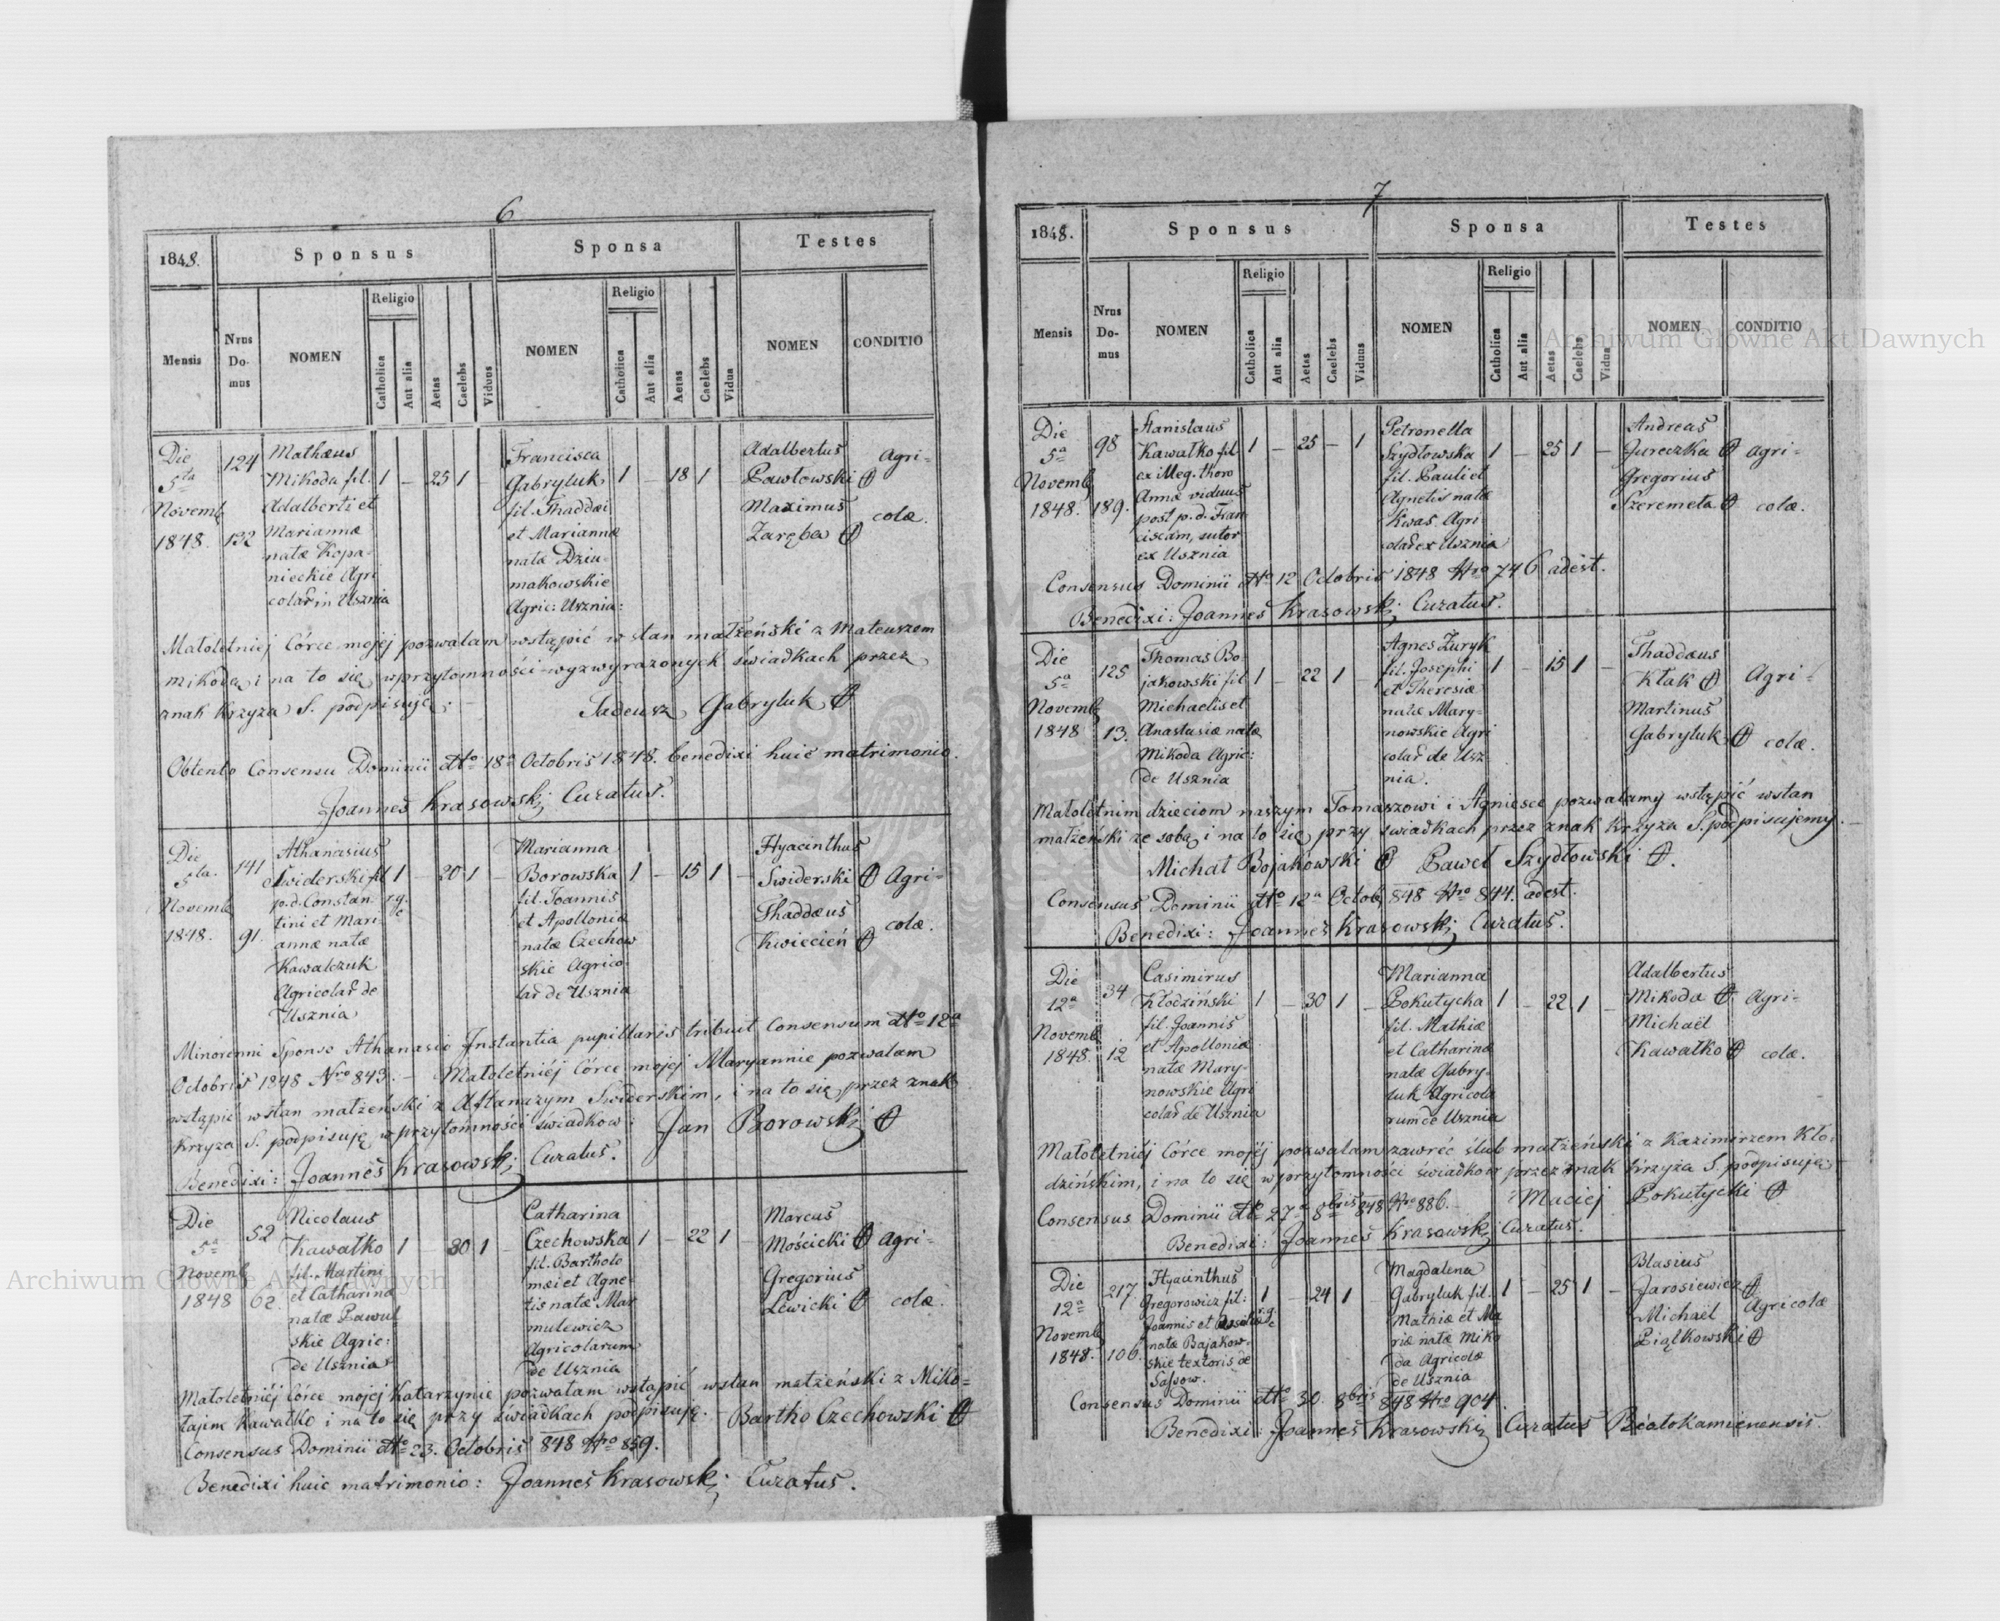 6
1848.
Sponsus
Sponsa
Testes
Mensis
Nrus Domus
NOMEN
Religio
Catholica
Aut alia
Aetas
Caelebs
Viduus
NOMEN
Religio
Catholica
Aut alia
Aetas
Caelebs
Vidua
NOMEN
CONDITIO
Die
5ta
Novemb
1848.
124
132
Mathæus
Mikoda fil.
Adalberti et
Mariannæ
natæ Kopa-
nieckie Agri
colar in Usznia
1 — 25 1
Francisca
Gabryluk
fil. Thaddæi
et Mariannæ
natæ Dziu-
makowskie
Agric: Usznia:
1 — 18 1
Adalbertus
Pawłowski
Maximus
Zaręba
Agri-
colæ.
Małoletniej Córce mojej pozwalam wstąpić w stan małżeński z Mateuszem
Mikodą i na to się w przytomności wyzwyrażonych świadkach przez
znak Krzyża S. podpisuję.
Tadeusz Gabryluk
Obtento Consensu Dominii dtto 18a Octobris 1848. benedixi huic matrimonio.
Joannes Krasowski Curatus.
Die
5ta.
Novemb
1848.
141
91.
Athanasius
Swiderski fil
p.d. Constan
tini et Mari-
annæ natæ
Kawalczuk
Agricolar de
Usznia
1 — 20 1
Marianna
Borowska
fil. Joannis
et Apollonia
natæ Czechow
skie Agrico-
lar de Usznia
1 — 15 1 —
Hyacinthus
Swiderski
Thaddæus
Kwiecień
Agri-
colæ.
Minorenni Sponso Athanasio Instantia pupillaris tribuit Consensum dtto 12a
Octobris 1848 Nro 843. — Małoletniéj Córce mojej Maryannie pozwalam
wstąpić w stan małżeński z Aftanazym Swiderskim, i na to się przez znak
Krzyża S. podpisuję w przytomności świadkow: Jan Borowski
Benedixi: Joannes Krasowski Curatus.
Die
5a
Novemb
1848
52
62.
Nicolaus
Kawałko
fil. Martini
et Catharinæ
natæ Pawul
skie Agric:
de Usznia
1 30 1
Catharina
Czechowska
fil. Bartholo
mæi et Agne-
tis natæ Mar
mulewicz
Agricolarum
de Usznia
1 — 22 1 —
Marcus
Mościcki
Gregorius
Lewicki
Agri-
colæ.
Małoletniéj Córce mojej Katarzynie pozwalam wstąpić w stan małżeński z Miko-
łajim Kawałko i na to się przy świadkach podpisuję. — Bartko Czechowski
Consensus Dominii dtto 23. Octobris 848 Nro 859.
Benedixi huic matrimonio: Joannes Krasowski Curatus.
7
1848.
Sponsus
Sponsa
Testes
Mensis
Nrus Domus
NOMEN
Religio
Catholica
Aut alia
Aetas
Caelebs
Viduus
NOMEN
Religio
Catholica
Aut alia
Aetas
Caelebs
Vidua
NOMEN
CONDITIO
Die
5a
Novemb
1848.
98
189.
Stanislaus
Kawałko fil
ex illeg. thoro
Annæ viduus
post p.d. Fran
ciscam, sutor
ex Usznia
1 — 25 — 1
Petronella
Szydłowska
fil. Pauli et
Agnetis natæ
Kwas Agri
colar ex Usznia
1 — 25 1 —
Andreas
Jureczka
Gregorius
Szeremeta
Agri-
colæ.
Consensus Dominii dtto 12 Octobris 1848 Nro 746 adest.
Benedixi: Joannes Krasowski Curatus.
Die
5a
Novemb
1848
125
13.
Thomas Bo-
jakowski fil
Michaelis et
Anastasiæ natæ
Mikoda Agric:
de Usznia
1 — 22 1 —
Agnes Zuryk
fil. Josephi
et Theresiæ
natæ Mary-
nowskie Agri
colar de Usz
nia.
1 — 15 1 —
Thaddæus
Kłak
Martinus
Gabryluk
Agri-
colæ.
Małoletnim dzieciom naszym Tomaszowi i Agniesce pozwalamy wstąpić w stan
małżeński ze sobą, i na to się przy świadkach przez znak Krzyża S. podpisujemy.
Michał Bojakowski Paweł Szydłowski
Consensus Dominii dtto 12a Octob 848 Nro 844. adest.
Benedixi: Joannes Krasowski Curatus.
Die
12a
Novemb
1848.
34
12
Casimirus
Kłodziński
fil. Joannis
et Apolloniæ
natæ Mary-
nowskie Agri
colar de Usznia
1 — 30 1 —
Marianna
Pokutycha
fil. Mathiæ
et Catharinæ
natæ Gabry-
luk Agricola
rum de Usznia
1 — 22 1 —
Adalbertus
Mikoda
Michaël
Kawałko
Agri-
colæ.
Małoletniéj Córce mojéj pozwalam zawrzéć ślub małżeński z Kazimirzem Kło-
dzińskim, i na to się w przytomności świadkow przez znak Krzyża S. podpisuję
Consensus Dominii dtto 27a 8bris 848 Nro 886. — Maciej Pokutycki
Benedixi: Joannes Krasowski Curatus.
Die
12a
Novemb
1848.
217.
106.
Hyacinthus
Gregorowicz fil:
Joannis et
natæ Bajakow-
skie textoris de
Sassow.
1 — 24 1 —
Magdalena
Gabryluk fil.
Mathiæ et Ma
riæ natæ Miko
da Agricolæ
de Usznia
1 — 25 1 —
Blasius
Jarosiewicz
Michaël
Piątkowski
Agricolæ
Consensus Dominii dtto 30. 8bris 848 Nro 904.
Benedixi: Joannes Krasowski Curatus Białokamienensis
Archiwum Główne Akt Dawnych
Archiwum Główne Akt Dawnych